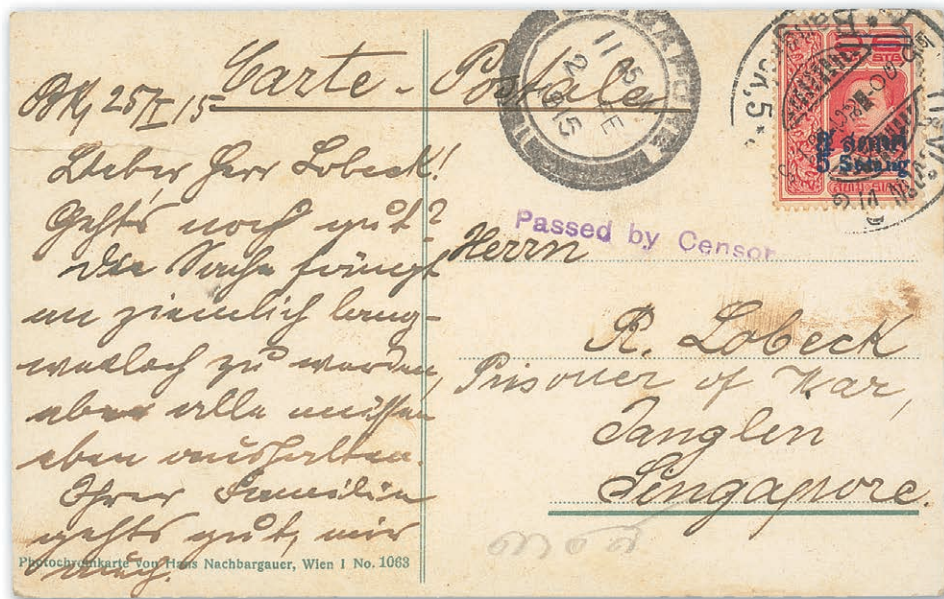 Carte-Postale
Bkk, 25/V 15
Lieber Herr Lobeck!
Geht's noch gut?
Die Sache fängt
an ziemlich lang-
weilig zu werden,
aber alle müssen
eben aushalten.
Ihrer Familie
gehts gut, mir
auch.
Passed by Censor
Herrn
R. Lobeck
Prisoner of War,
Tanglen
Singapore.
5 Satang
11 15
2 JE
1915
Photochromkarte von Hans Nachbargauer, Wien I No. 1063